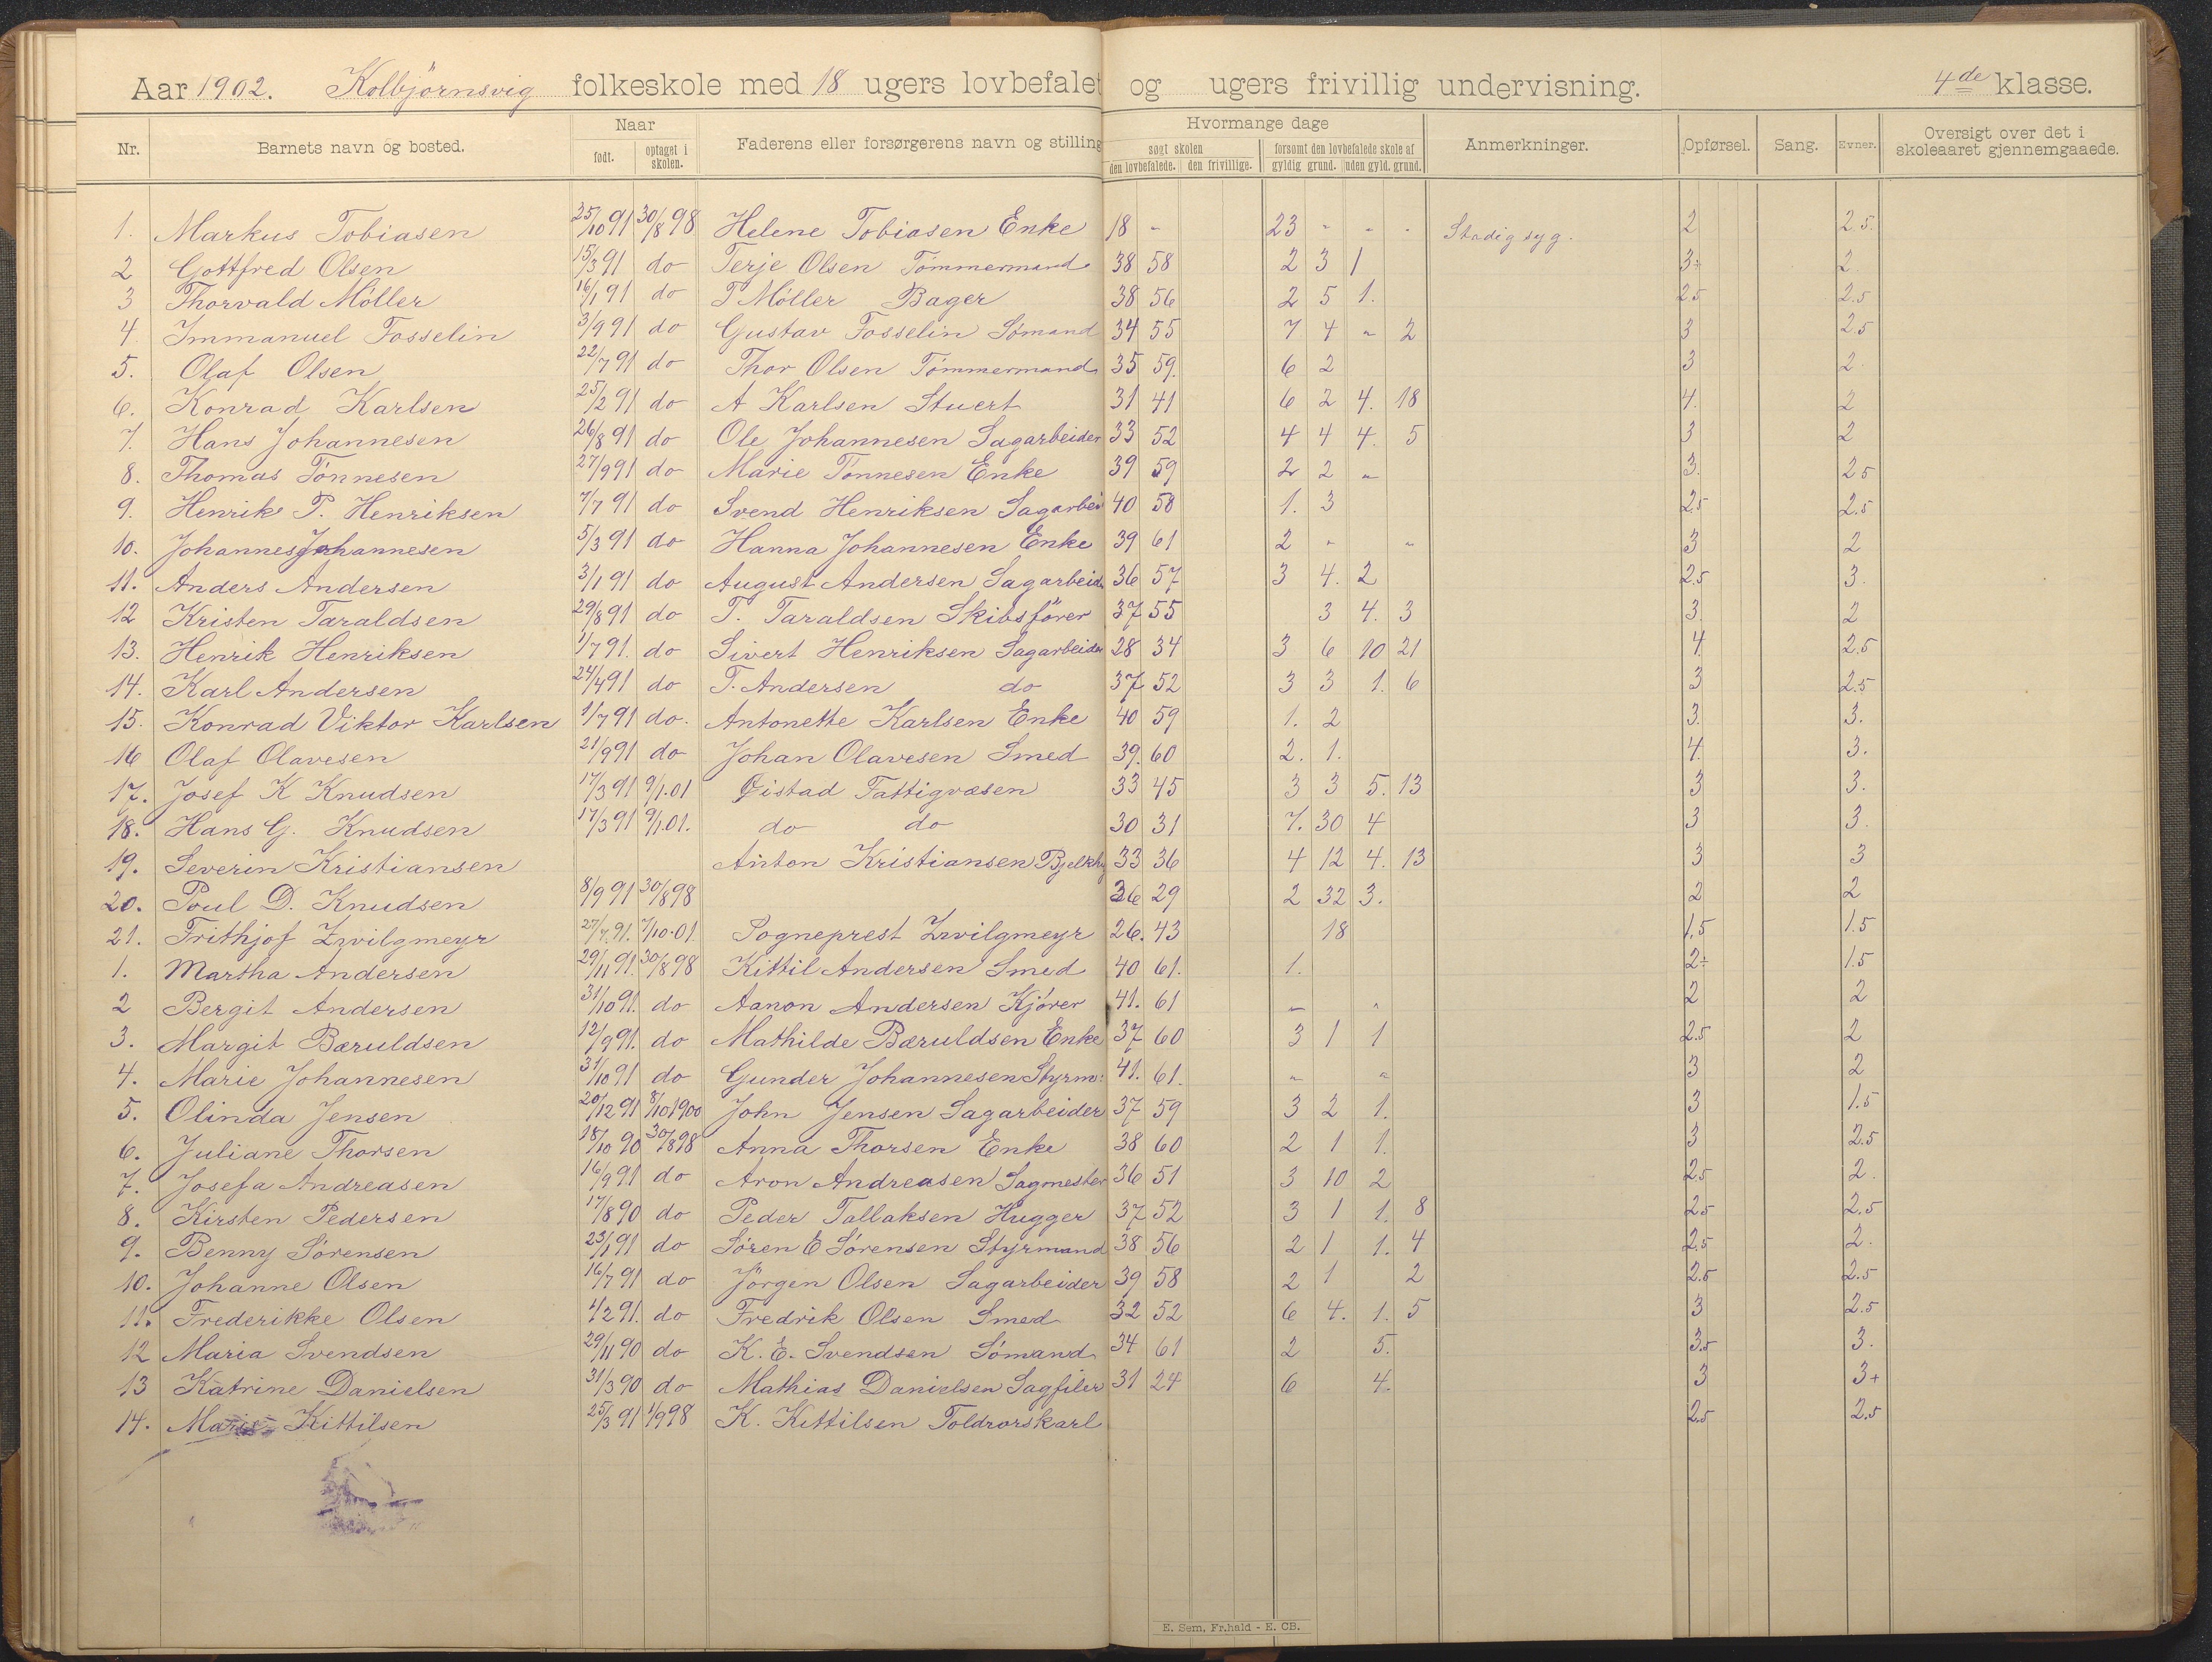 Aar 1902. Kolbjörnsvig folkeskole med 18 ugers lovbefalet og ugers frivillig undervisning. 4de klasse.
Nr. Barnets navn og bosted. Naar født. optaget i skolen. Faderens eller forsørgerens navn og stilling Hvormange dage søgt skolen den lovbefalede. den frivillige. forsømt den lovbefalede skole af gyldig grund. uden gyld. grund. Anmerkninger. Opførsel. Sang. Evner. Oversigt over det i skoleaaret gjennemgaaede.
1. Markus Tobiasen 25/10 91 30/8 98 Helene Tobiasen Enke 18 - 23 " " " Stadig syg. 2 2.5.
2 Gottfred Olsen 15/3 91 do Terje Olsen Tømmermand 38 58 2 3 1 3+ 2.
3 Thorvald Møller 16/1 91 do T Møller Bager 38 56 2 5 1. 2.5 2.5
4. Immanuel Fosselin 3/9 91 do Gustav Fosselin Sømand 34 55 7 4 " 2 3 2.5
5. Olaf Olsen 22/7 91 do Thor Olsen Tømmermand 35 59. 6 2 3 2.
6. Konrad Karlsen 25/2 91 do A Karlsen Stuert 31 41 6 2 4. 18 4. 2
7. Hans Johannesen 26/8 91 do Ole Johannesen Sagarbeider 33 52 4 4 4. 5 3 2
8. Thomas Tønnesen 27/9 91 do Marie Tønnesen Enke 39 59 2 2 " 3. 2.5
9. Henrik P. Henriksen 7/7 91 do Svend Henriksen Sagarbei 40 58 1. 3 2.5 2.5
10. Johannes Johannesen 5/3 91 do Hanna Johannesen Enke 39 61 2 " " 3 2
11. Anders Andersen 3/1 91 do August Andersen Sagarbeid 36 57 3 4. 2 2.5 3.
12 Kristen Taraldsen 29/8 91 do T. Taraldsen Skibsfører 37 55 3 4. 3 3. 2
13. Henrik Henriksen 1/7 91. do Sivert Henriksen Sagarbeider 28 34 3 6 10 21 4. 2.5
14. Karl Andersen 24/4 91 do T. Andersen do 37 52 3 3 1. 6 3 2.5
15. Konrad Viktor Karlsen 1/7 91 do. Antonette Karlsen Enke 40 59 1. 2 3. 3.
16 Olaf Olavesen 21/9 91 do Johan Olavesen Smed 39. 60 2. 1. 4. 3.
17. Josef K Knudsen 17/3 91 9/1.01 Øistad Fattigvæsen 33 45 3 3 5. 13 3 3.
18. Hans G. Knudsen 17/3 91 9/1.01. do do 30 31 7. 30 4 3 3.
19. Severin Kristiansen Anton Kristiansen 33 36 4 12 4. 13 3 3
20. Poul D. Knudsen 8/9 91 30/8 98 26 29 2 32 3. 2 2
21. Frithjof Zwilgmeyr 27/7 91. 7/10.01. Sogneprest Zwilgmeyr 26. 43 18 1.5 1.5
1. Martha Andersen 29/11 91. 30/8 98 Kittil Andersen Smed 40 61. 1. 2÷ 1.5
2 Bergit Andersen 31/10 91. do Aanon Andersen Kjører 41. 61 " " 2 2
3. Margit Bæruldsen 12/9 91. do Mathilde Bæruldsen Enke 37 60 3 1 1 2.5 2
4. Marie Johannesen 31/10 91 do Gunder Johannesen Styrm: 41. 61. " " 3 2
5. Olinda Jensen 20/12 91 8/10 1900 John Jensen Sagarbeider 37 59 3 2 1. 3 1.5
6. Juliane Thorsen 18/10 90 30/8 98 Anna Thorsen Enke 38 60 2 1 1. 3 2.5
7. Josefa Andreasen 16/9 91 do Aron Andreasen Sagmester 36 51 3 10 2 2.5 2.
8. Kirsten Pedersen 17/8 90 do Peder Tallaksen Hugger 37 52 3 1 1. 8 2.5 2.5
9. Benny Sørensen 23/1 91 do Søren E Sørensen Styrmand 38 56 2 1 1. 4 2.5 2.
10. Johanne Olsen 16/7 91 do Jörgen Olsen Sagarbeider 39 58 2 1 2 2.5 2.5
11. Frederikke Olsen 4/2 91. do Fredrik Olsen Smed 32 52 6 4. 1. 5 3 2.5
12 Maria Svendsen 29/11 90 do K. E. Svendsen Sømand 34 61 2 5. 3.5 3.
13 Katrine Danielsen 31/3 90 do Mathias Danielsen Sagfiler 31 24 6 4. 3 3+
14. Marie Kittilsen 25/3 91 1/9 98 K. Kittilsen Toldrorskarl 2.5 2.5
E. Sem, Fr.hald - E. CB.